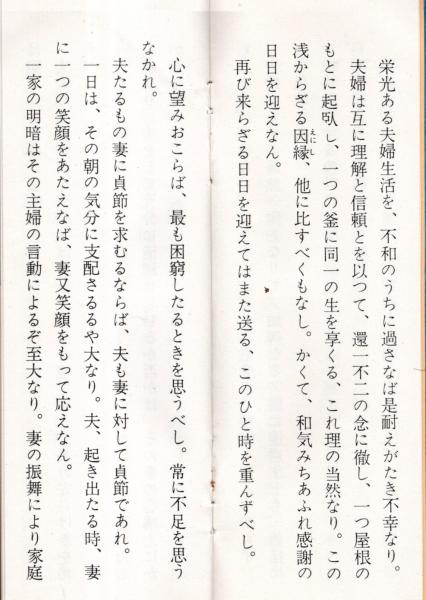 栄光ある夫婦生活を、不和のうちに過さなば是耐えがたき不幸なり。
夫婦は互に理解と信頼とを以つて、還一不二の念に徹し、一つ屋根の
もとに起臥し、一つの釜に同一の生を享くる、これ理の当然なり。この
浅からざる因縁、他に比すべくもなし。かくて、和気みちあふれ感謝の
えにし
日日を迎えなん。
再び来らざる日日を迎えてはまた送る、このひと時を重んずべし。
心に望みおこらば、最も困窮したるときを思うべし。常に不足を思う
なかれ。
夫たるもの妻に貞節を求むるならば、夫も妻に対して貞節であれ。
一日は、その朝の気分に支配さるるや大なり。夫、起き出たる時、妻
に一つの笑顔をあたえなば、妻又笑顔をもって応えなん。
一家の明暗はその主婦の言動によるぞ至大なり。妻の振舞により家庭